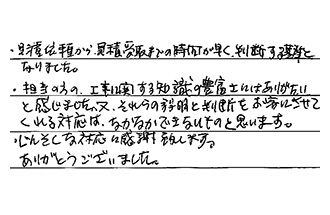 ・見積依頼から、見積受取までの時間が早く、判断する基準と
なりました。
・担当の方の、工事に関する知識の豊富さにはありがたい
と感じました。又、それらの説明と判断をお客にさせて
くれる対応は、なかなかできないものと思います。
・しんせつな対応に感謝致します。
ありがとうございました。